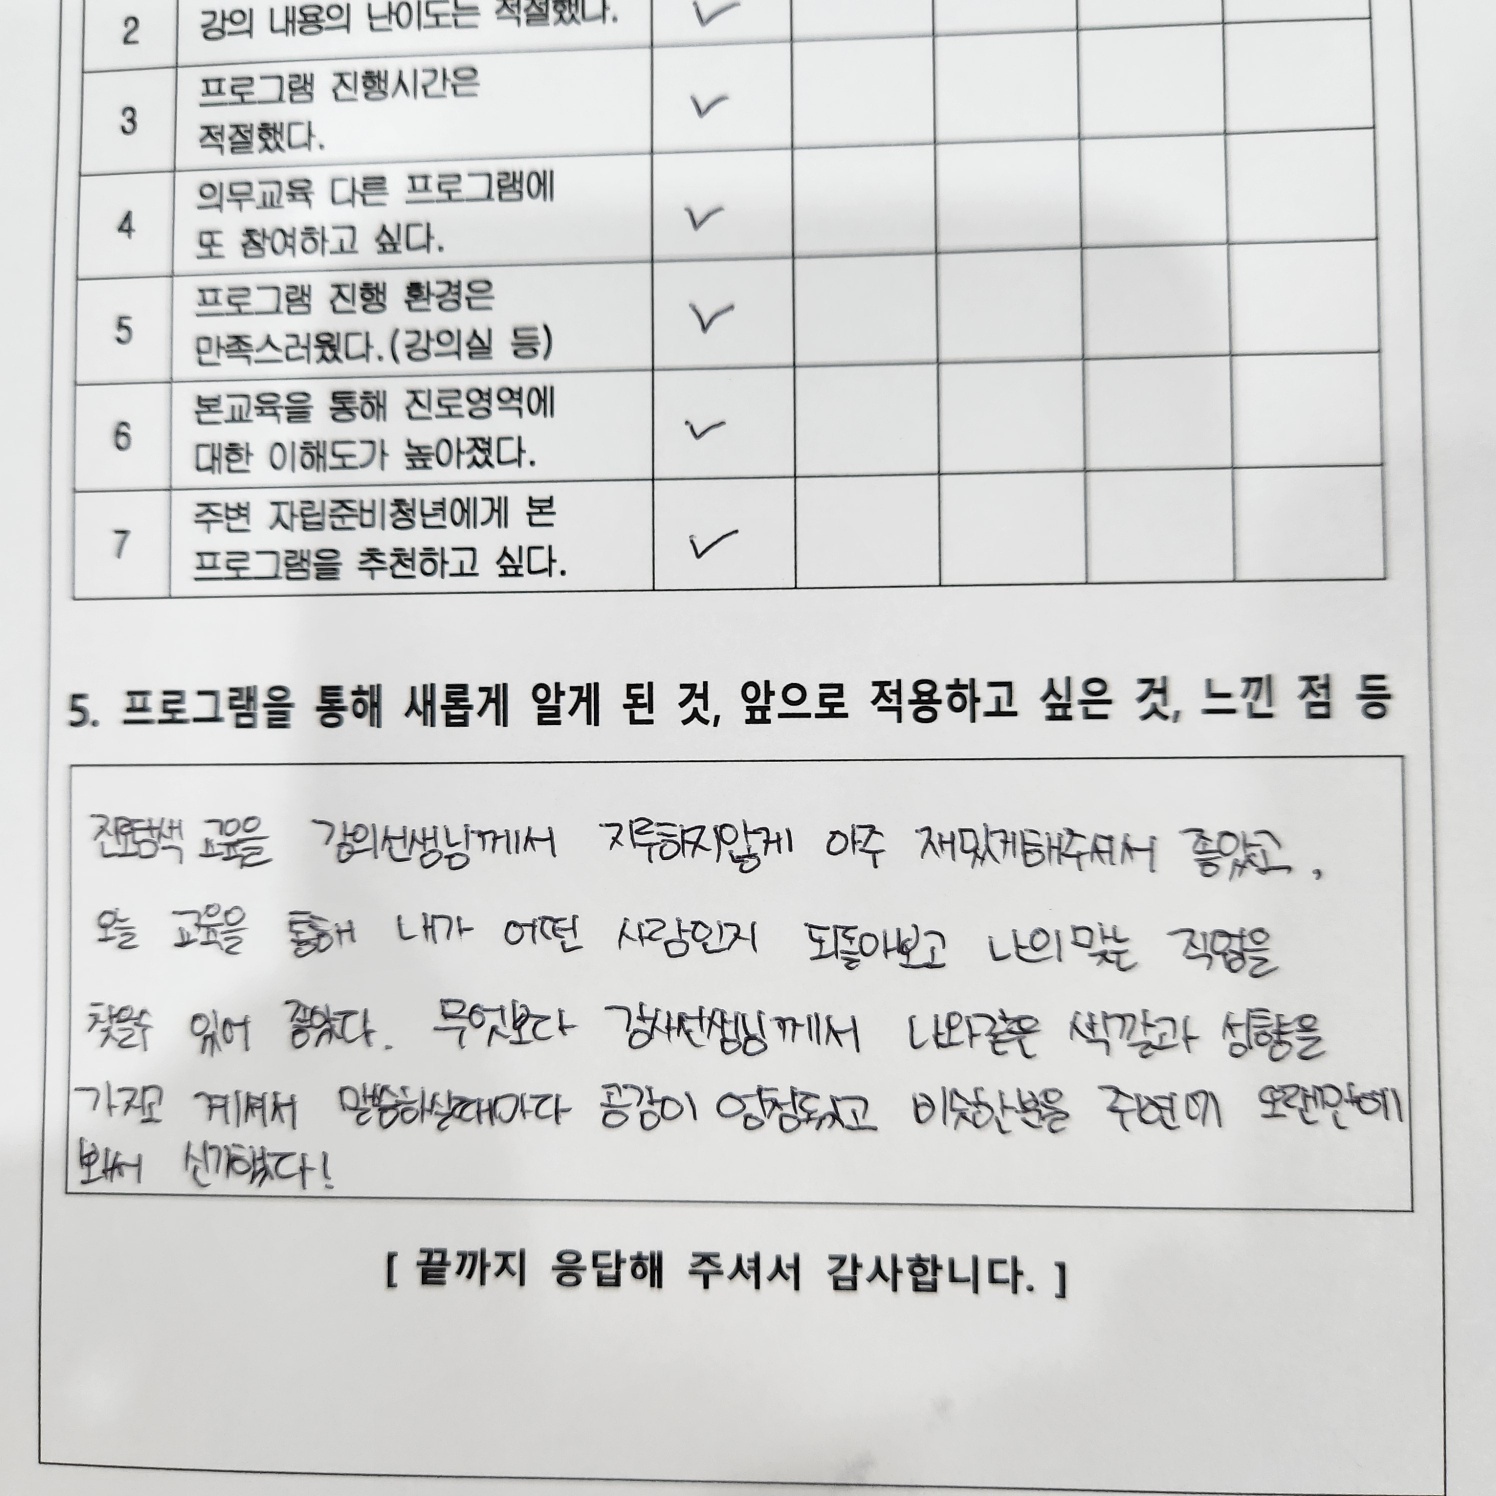 2 강의 내용의 난이도는 적절했다. ✓
3 프로그램 진행시간은 ✓
적절했다.
4 의무교육 다른 프로그램에 ✓
또 참여하고 싶다.
5 프로그램 진행 환경은 ✓
만족스러웠다.(강의실 등)
6 본교육을 통해 진로영역에 ✓
대한 이해도가 높아졌다.
7 주변 자립준비청년에게 본 ✓
프로그램을 추천하고 싶다.
5. 프로그램을 통해 새롭게 알게 된 것, 앞으로 적용하고 싶은 것, 느낀 점 등
진로탐색 교육을 강의선생님께서 지루하지않게 아주 재밌게해주셔서 좋았고,
오늘 교육을 통해 내가 어떤 사람인지 되돌아보고 나의맞는 직업을
찾을수 있어 좋았다. 무엇보다 강사선생님께서 나와같은 색깔과 성향을
가지고 계셔서 말씀하실때마다 공감이 엄청되었고 비슷한분을 주변에 오랜만에
봐서 신기했다!
[ 끝까지 응답해 주셔서 감사합니다. ]